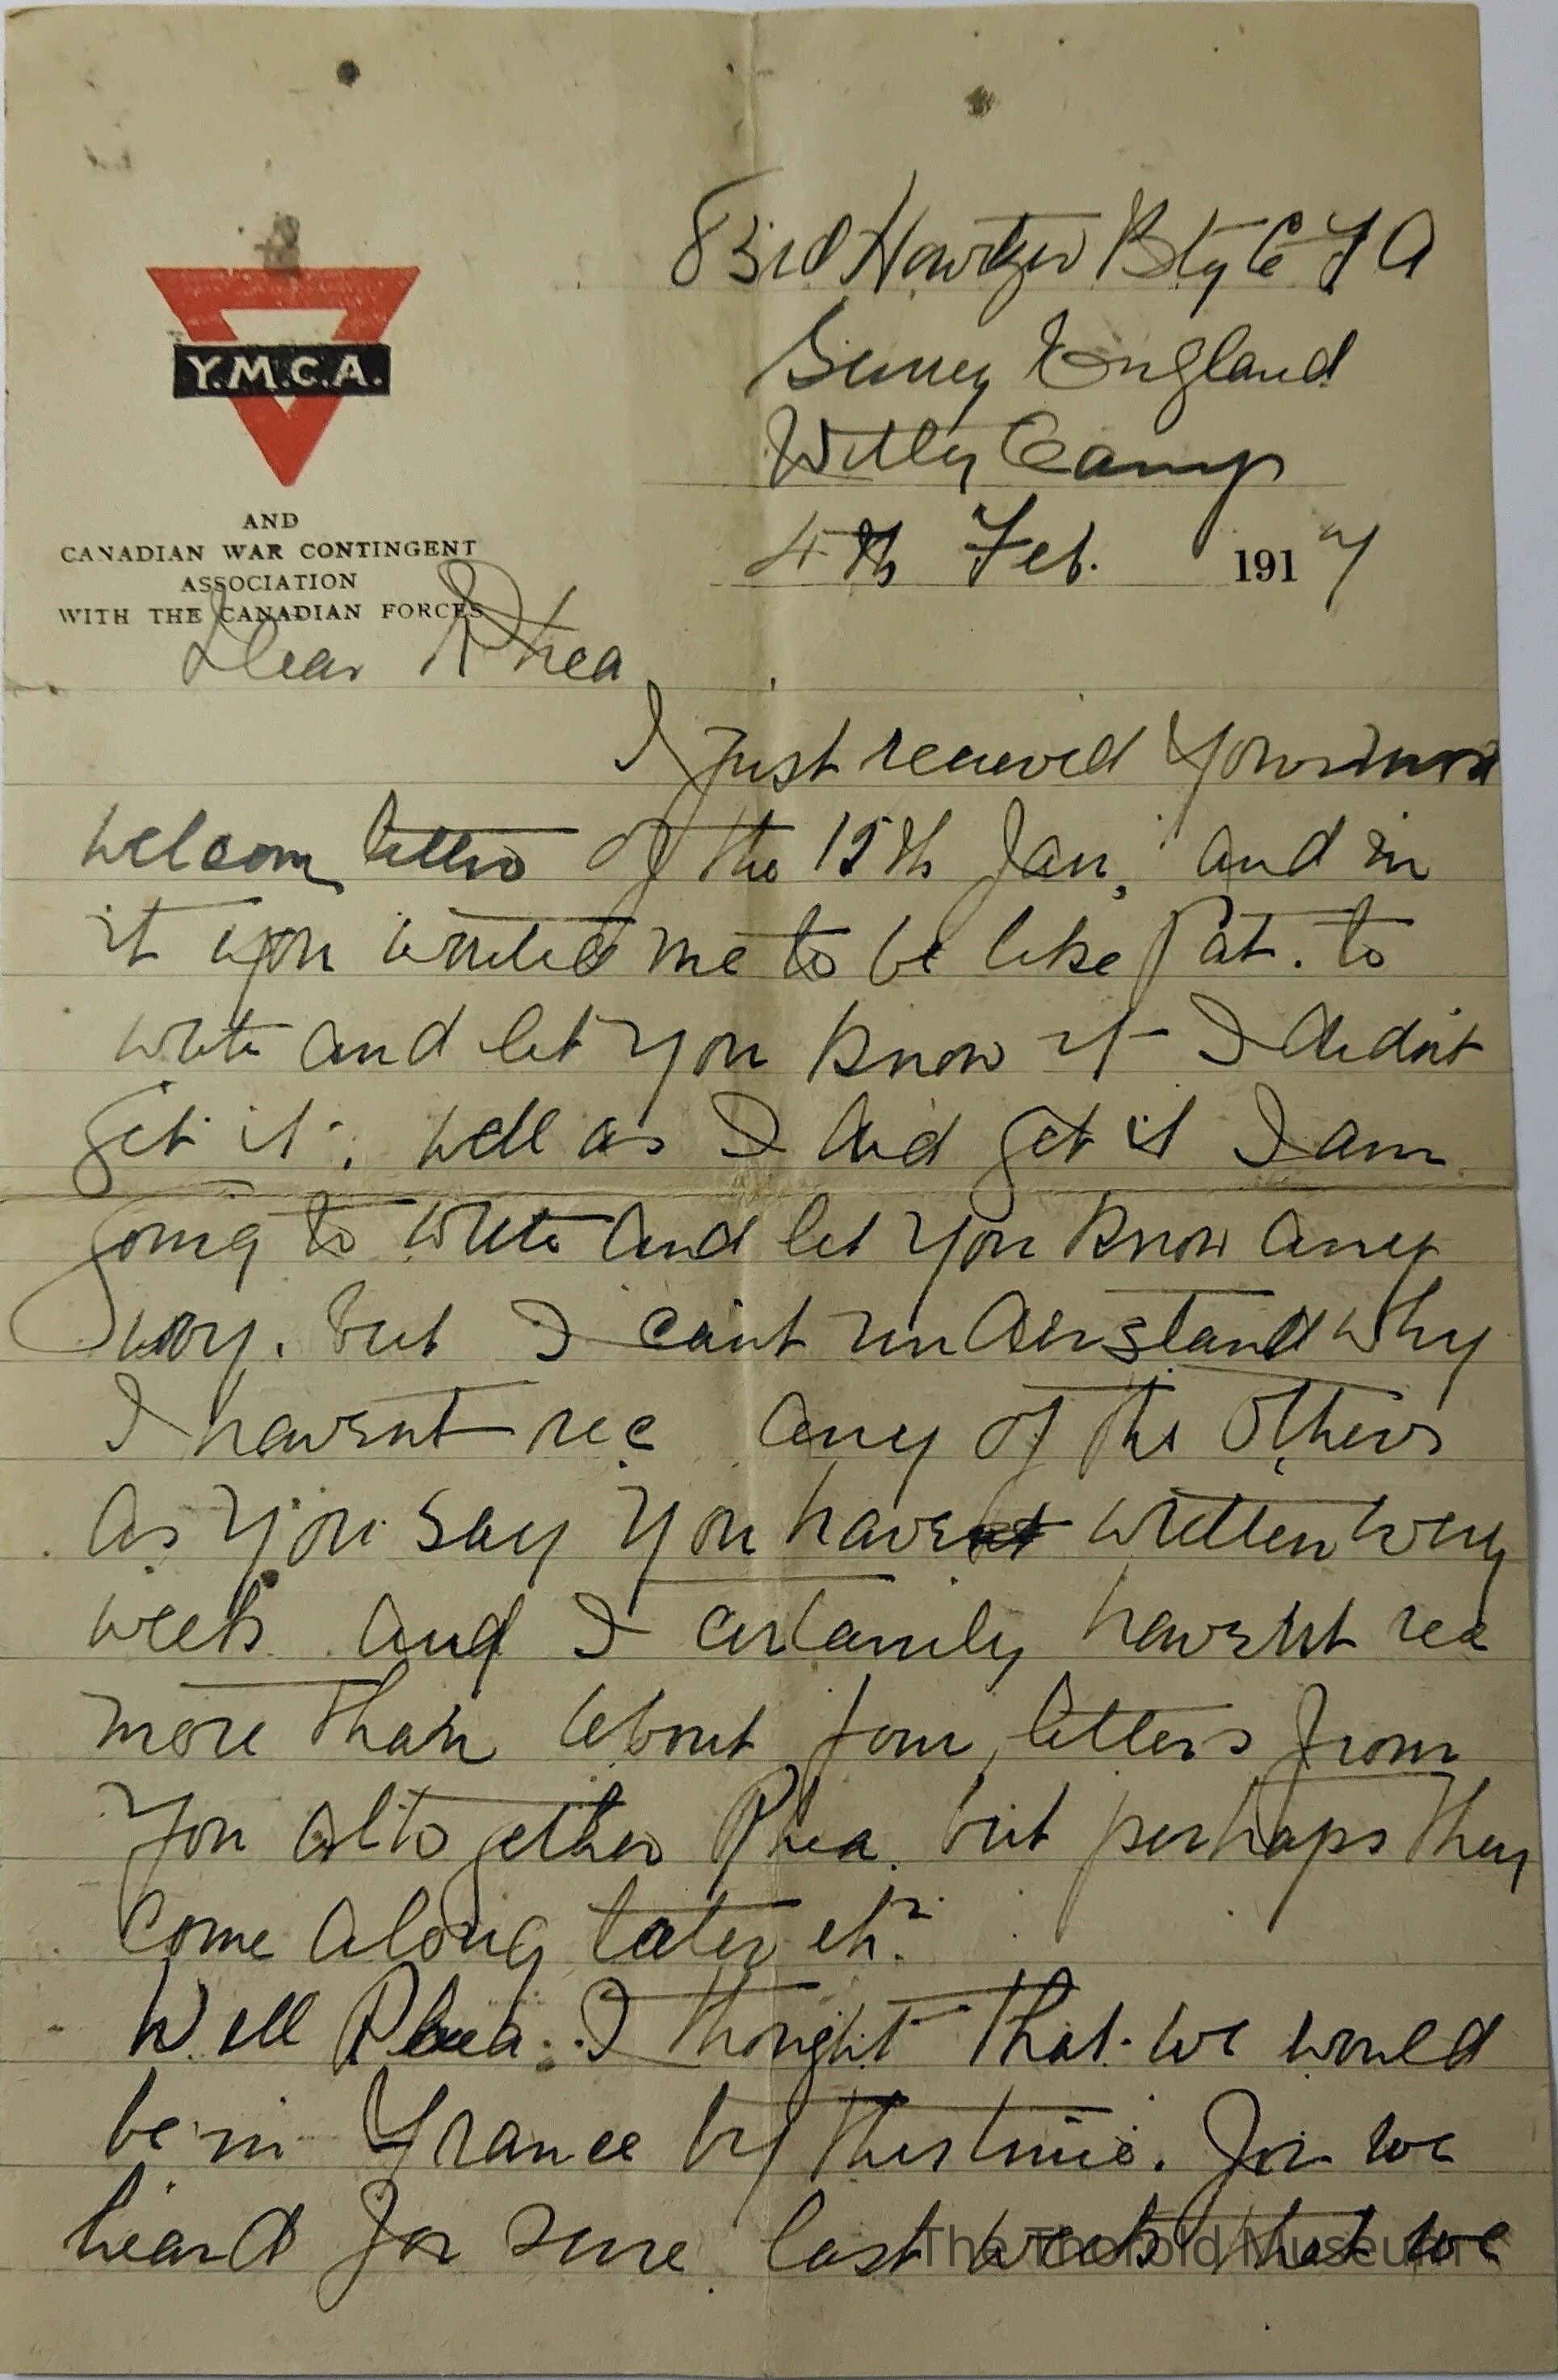 Y.M.C.A.
AND
CANADIAN WAR CONTINGENT
ASSOCIATION
WITH THE CANADIAN FORCES
83rd Howtzer Bty C F A
Surrey England
Witley Camp
4th Feb. 1917
Dear Rhea
I just received your most
welcom letter of the 15th Jan, and in
it you wanted me to be like Pat. to
write and let you know if I didnt
get it. well as I did get it I am
going to write and let you know any
way. but I cant understand why
I havent rec any of the others
as you say you have written every
week and I certainly havent rec
more than about four letters from
you altogether Rhea. but perhaps they
come along later eh?
Well Rhea. I thought that we would
be in France by this time. for we
heard for sure last week that we
The Thorold Museum